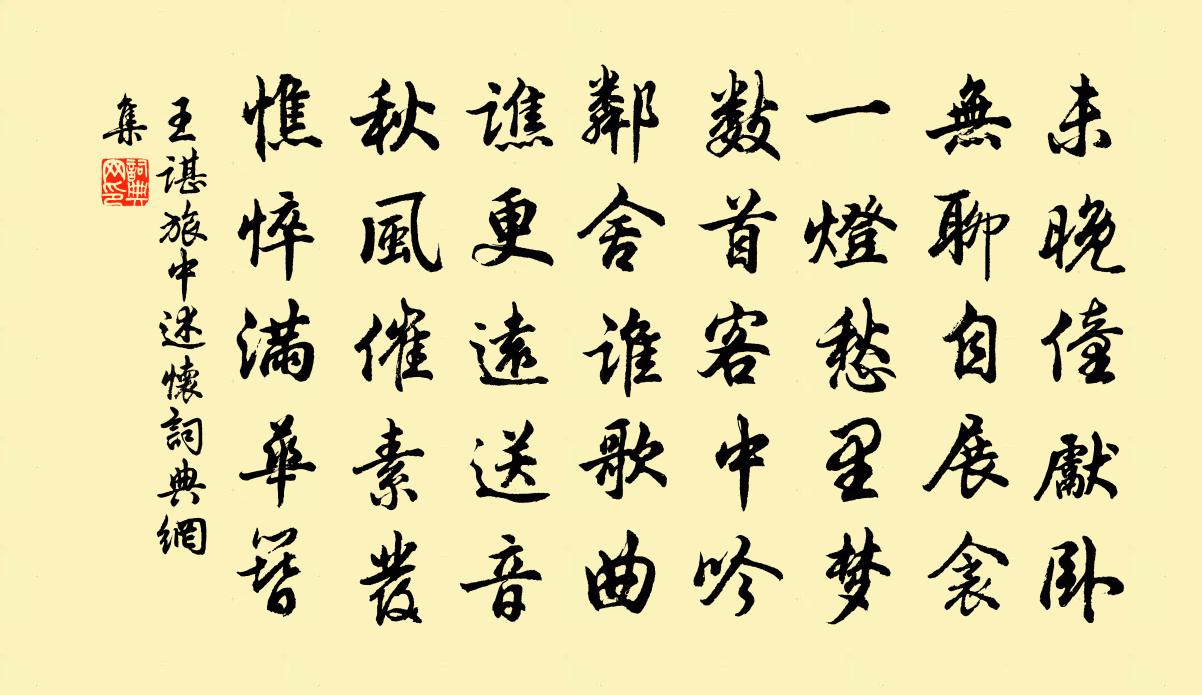 未晚僮獻卧
無聊自展衾
一燈愁里梦
数首客中吟
鄰舍誰歌曲
譙更遠送音
秋風催素發
憔悴滿華簪
王諶旅中述懷詞典網
集
詞典
网印